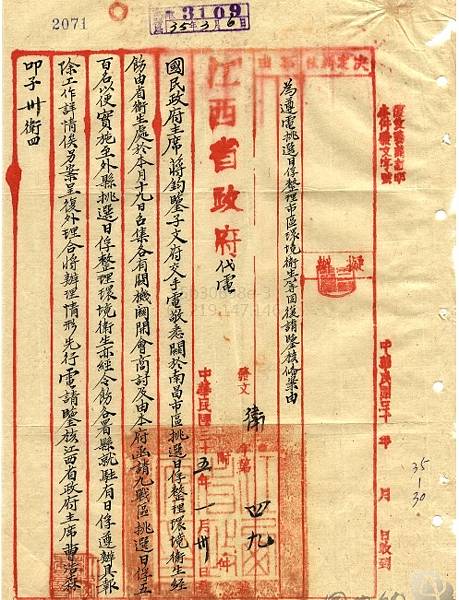 2071
3109
35年3月6日
中華民國三十 年 月 日收到
35-1-30
擬辦
為遵電挑選日俘整理市區環境衛生等因復請鑒核備案由
江西省政府代電
發文 衛 字第 四九
中華民國三十五年一月卅日
國民政府主席蔣鈞鑒子文府交手電敬悉關於南昌市區挑選日俘整理環境衛生經
飭由省衛生處於本月十九日召集各有關機關開會商討及由本府函請九戰區挑選日俘五
百名以便實施至外縣挑選日俘整理環境衛生亦經令飭各署縣就駐有日俘遵辦具報
除工作詳情俟另案呈復外理合將辦理情形先行電請鑒核江西省政府主席曹浩森
叩子卅衛四